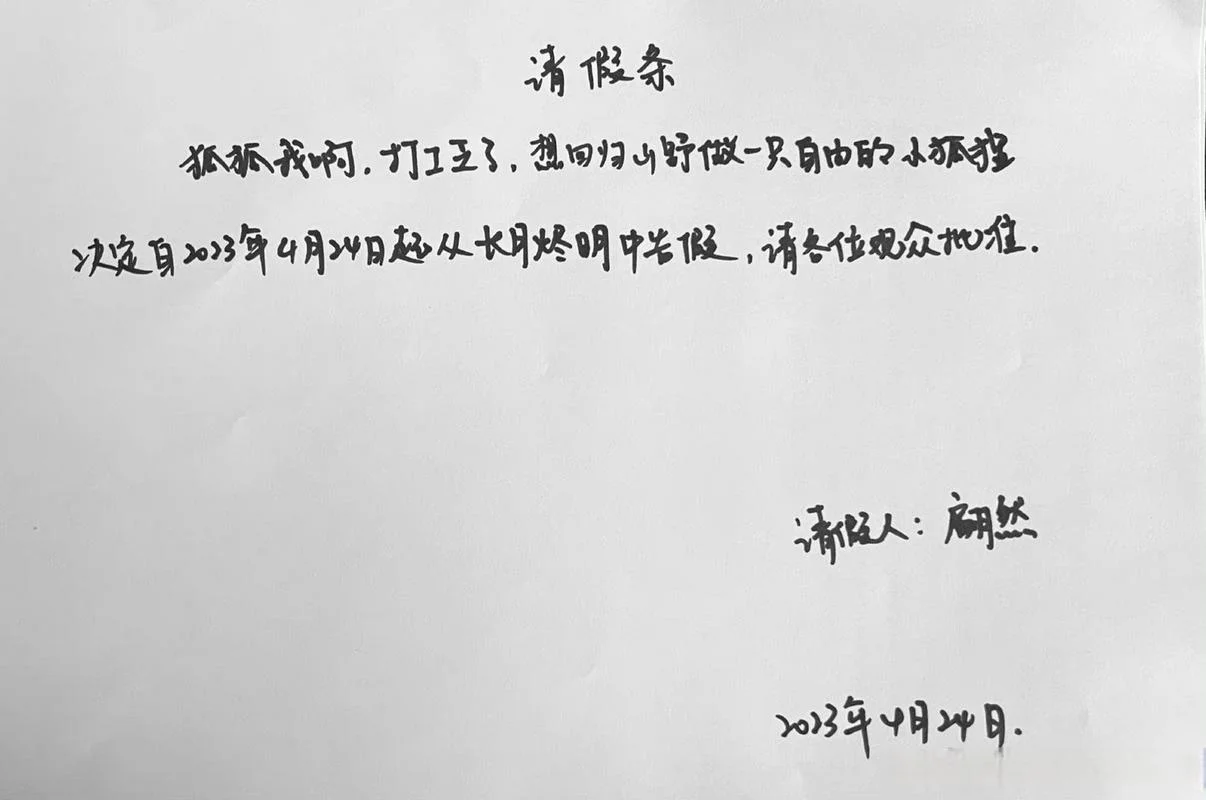 请假条
狐狐我啊,打工至了,想回归山野做一只自由的小狐狸
决定自2023年4月24日起从长月烬明中告假,请各位观众批准.
请假人:翩然
2023年4月24日.